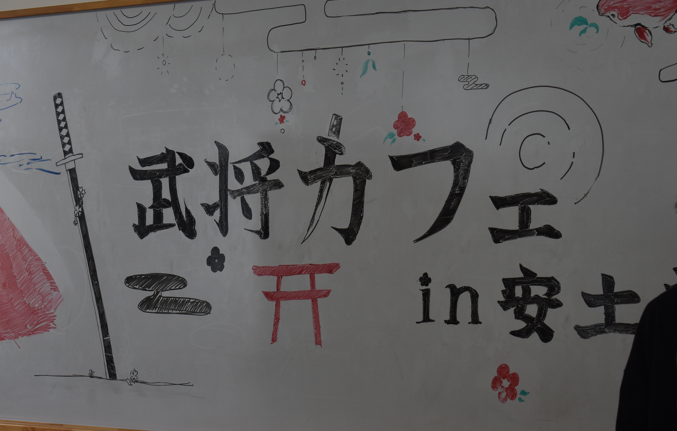 武将カフェ
in 安土